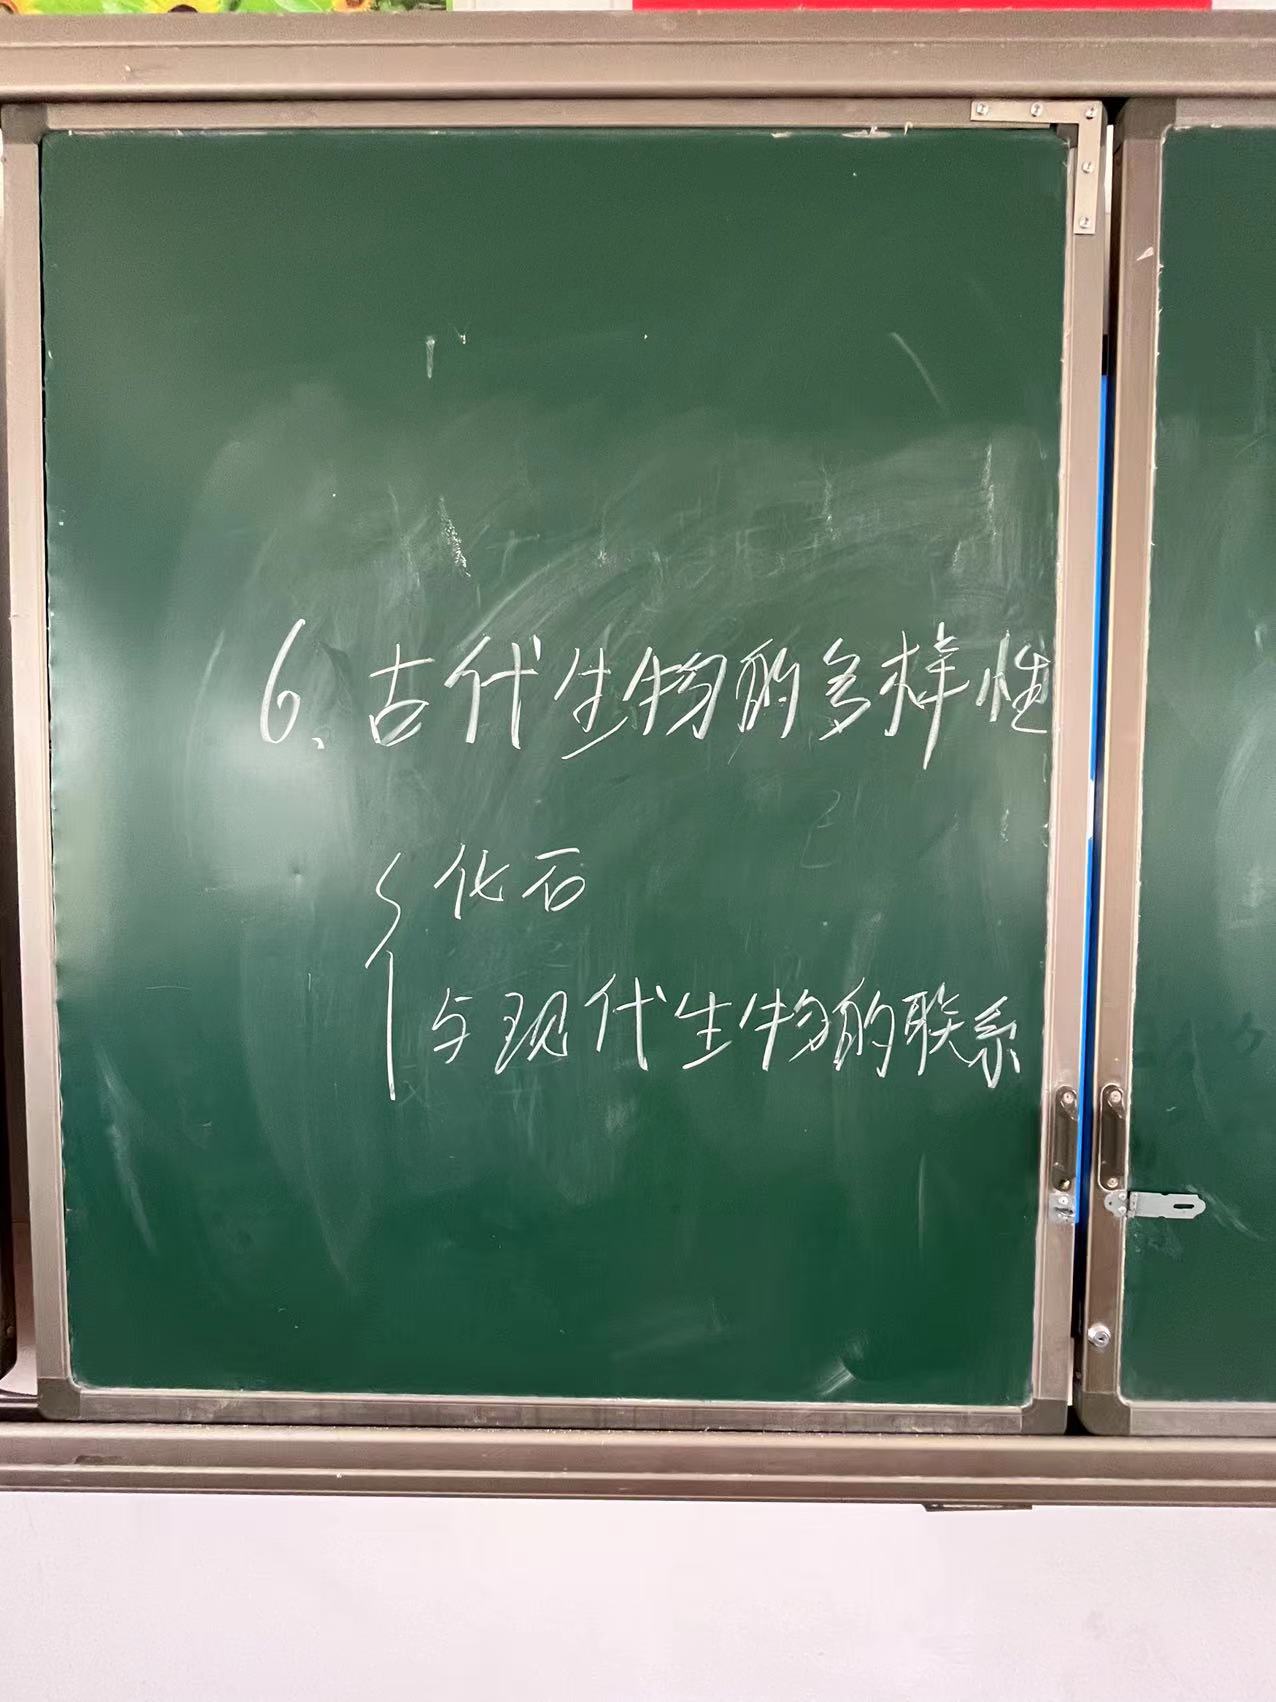 6、古代生物的多样性
化石
与现代生物的联系